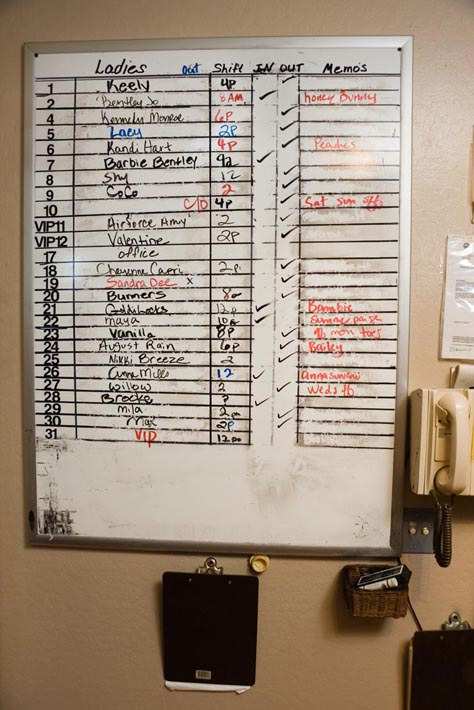 Ladies out Shift IN OUT Memos
1 Keely 4P
2 Bentley Jo 8AM honey Bunny
4 Kennedy Monroe 6P
5 Lacy 2P
6 Kandi Hart 4P Peaches
7 Barbie Bentley 9a
8 Shy 12
9 CoCo 2
10 C/O 4P Sat sun off
VIP11 Airforce Amy 2
VIP12 Valentine 2P
17 office
18 Cheyenne 2P
19 Sandra Dee x
20 Burners
21 Goldilocks 12P Bambie
22 maya
23 Vanilla 8P
24 August Rain 6P Bailey
25 Nikki Breeze 2
26 12
27 Willow 2 Weds
28 Brooke
29 mila 2
30 Max 2P
31 VIP